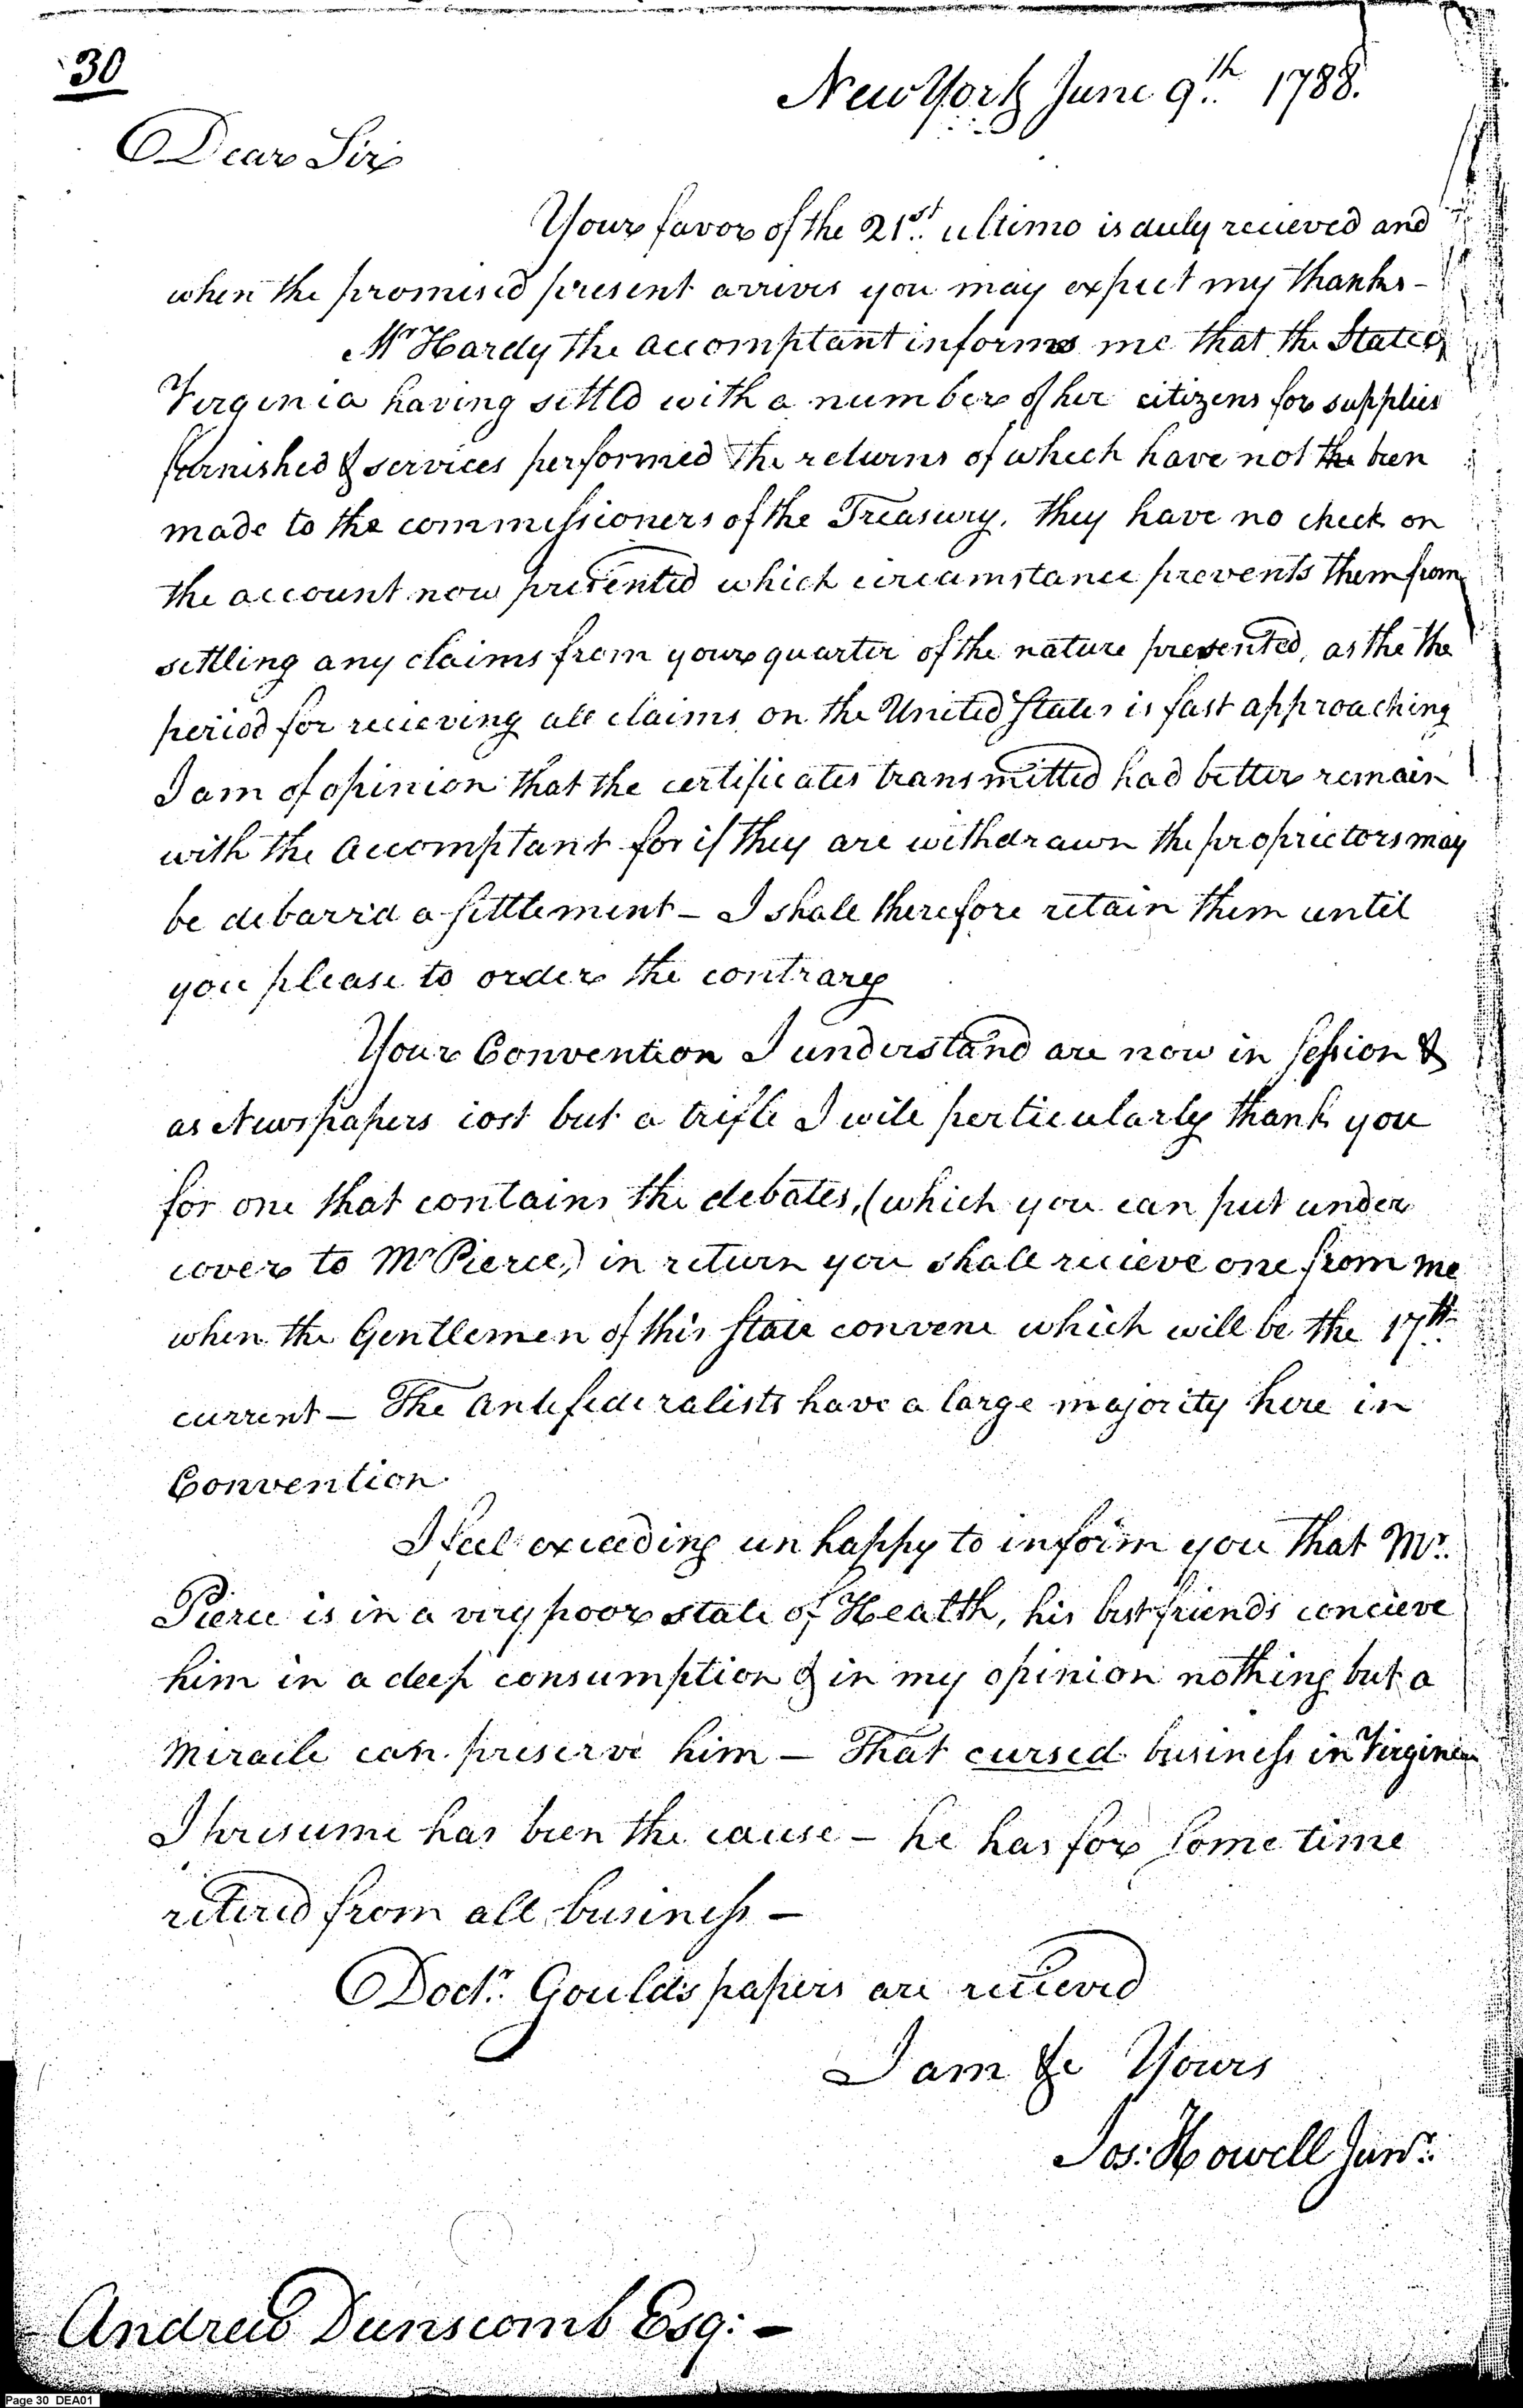 30
New York June 9th. 1788.
Dear Sir
Your favor of the 21st. ultimo is duly recieved and
when the promised present arrives you may expect my thanks -
Mr Hardy the accomptant informs me that the State of
Virginia having settld with a number of her citizens for supplies
furnished & services performed the returns of which have not the been
made to the commissioners of the Treasury. they have no check on
the account now presented which circumstance prevents them from
settling any claims from your quarter of the nature presented, as the the
period for recieving all claims on the United States is fast approaching
I am of opinion that the certificates transmitted had better remain
with the accomptant for if they are withdrawn the proprietors may
be debarrd a settlement - I shall therefore retain them until
you please to order the contrary
Your Convention I understand are now in session &
as Newspapers cost but a trifle I will perticularly thank you
for one that contains the debates, (which you can put under
cover to Mr Pierce,) in return you shall recieve one from me
when the Gentlemen of this State convene which will be the 17th.
current - The Antifederalists have a large majority here in
Convention
I feel exceeding unhappy to inform you that Mr.
Pierce is in a very poor state of Health, his best friends concieve
him in a deep consumption & in my opinion nothing but a
Miracle can preserve him - That cursed business in Virginia
I presume has been the cause - he has for some time
retired from all business -
Doctr. Gould's papers are recieved
I am &c Yours
Jos: Howell Junr.
Andrew Dunscomb Esq: -
Page 30 DEA01